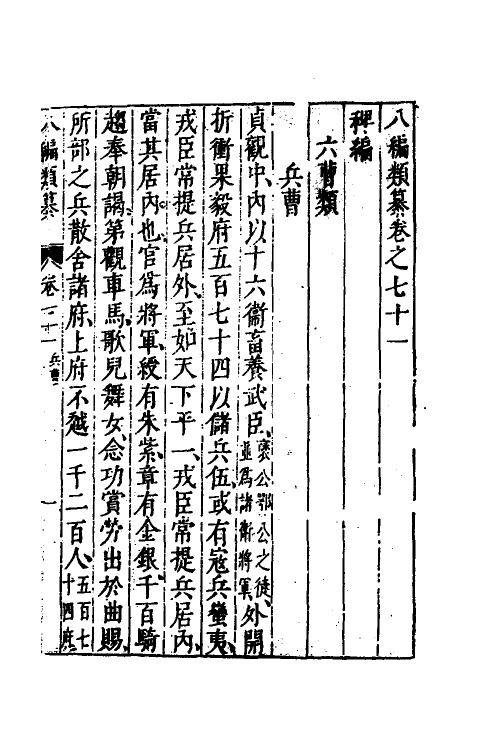 八編類纂卷之七十一
稗編
六曹類
兵曹
貞觀中內以十六衞畜養武臣褒公鄂公之徒並爲諸衞將軍外開
折衝果毅府五百七十四以儲兵伍或有寇兵蠻夷
戎臣常提兵居外至如天下平一戎臣常提兵居內
當其居內也官爲將軍綬有朱紫章有金銀千百騎
趨奉朝謁第觀車馬歌兒舞女念功賞勞出於曲賜
所部之兵散舍諸府上府不越一千二百人五百七十四府
八編類纂 卷 兵曹 一